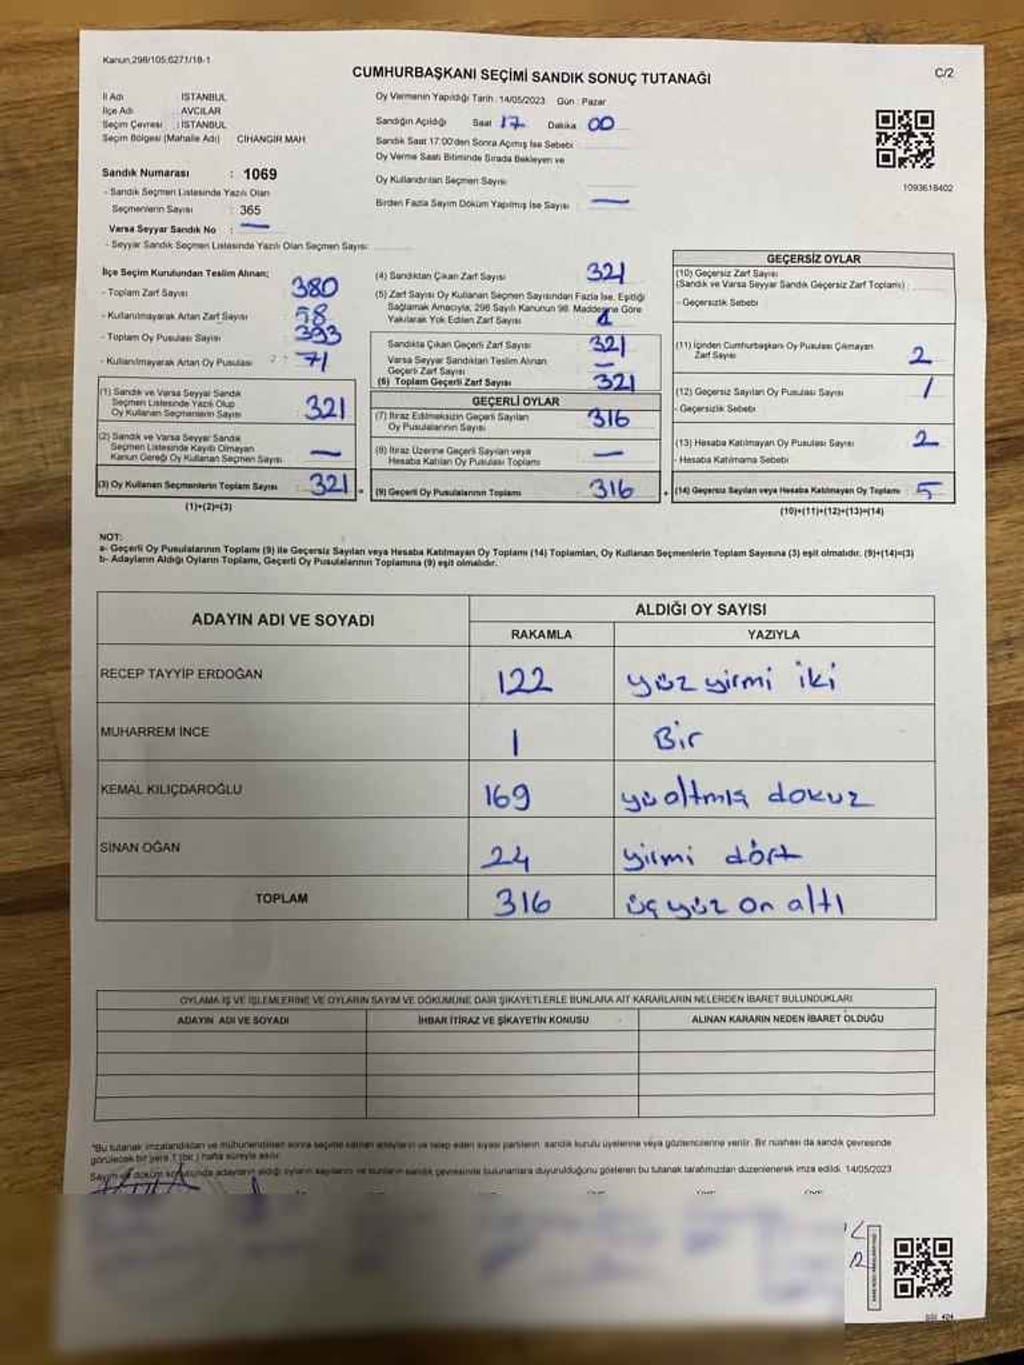 Kanun,298/105,6271/18-1
CUMHURBAŞKANI SEÇİMİ SANDIK SONUÇ TUTANAĞI
C/2
İl Adı : İSTANBUL
İlçe Adı : AVCILAR
Seçim Çevresi : İSTANBUL
Seçim Bölgesi (Mahalle Adı) CİHANGİR MAH
Sandık Numarası : 1069
- Sandık Seçmen Listesinde Yazılı Olan
Seçmenlerin Sayısı : 365
Varsa Seyyar Sandık No : —
- Seyyar Sandık Seçmen Listesinde Yazılı Olan Seçmen Sayısı:
Oy Vermenin Yapıldığı Tarih : 14/05/2023 Gün : Pazar
Sandığın Açıldığı Saat 17 Dakika 00
Sandık Saat 17:00'den Sonra Açımış İse Sebebi
Oy Verme Saati Bitiminde Sırada Bekleyen ve
Oy Kullandırılan Seçmen Sayısı
Birden Fazla Sayım Döküm Yapılmış İse Sayısı —
1093618402
İlçe Seçim Kurulundan Teslim Alınan;
- Toplam Zarf Sayısı 380
- Kullanılmayarak Artan Zarf Sayısı 58
- Toplam Oy Pusulası Sayısı 393
- Kullanılmayarak Artan Oy Pusulası 71
(1) Sandık ve Varsa Seyyar Sandık
Seçmen Listesinde Yazılı Olup
Oy Kullanan Seçmenlerin Sayısı 321
(2) Sandık ve Varsa Seyyar Sandık
Seçmen Listesinde Kayıtlı Olmayan
Kanun Gereği Oy Kullanan Seçmen Sayısı —
(3) Oy Kullanan Seçmenlerin Toplam Sayısı 321
(1)+(2)=(3)
(4) Sandıktan Çıkan Zarf Sayısı 321
(5) Zarf Sayısı Oy Kullanan Seçmen Sayısından Fazla İse, Eşitliği
Sağlamak Amacıyla, 298 Sayılı Kanunun 98. Maddesine Göre
Yakılarak Yok Edilen Zarf Sayısı
Sandıkta Çıkan Geçerli Zarf Sayısı 321
Varsa Seyyar Sandıktan Teslim Alınan
Geçerli Zarf Sayısı —
(6) Toplam Geçerli Zarf Sayısı 321
GEÇERLİ OYLAR
(7) İtiraz Edilmeksizin Geçerli Sayılan
Oy Pusulalarının Sayısı 316
(8) İtiraz Üzerine Geçerli Sayılan veya
Hesaba Katılan Oy Pusulası Toplamı —
(9) Geçerli Oy Pusulalarının Toplamı 316
GEÇERSİZ OYLAR
(10) Geçersiz Zarf Sayısı
(Sandık ve Varsa Seyyar Sandık Geçersiz Zarf Toplamı)
- Geçersizlik Sebebi
(11) İçinden Cumhurbaşkanı Oy Pusulası Çıkmayan
Zarf Sayısı 2
(12) Geçersiz Sayılan Oy Pusulası Sayısı 1
- Geçersizlik Sebebi
(13) Hesaba Katılmayan Oy Pusulası Sayısı 2
- Hesaba Katılmama Sebebi
(14) Geçersiz Sayılan veya Hesaba Katılmayan Oy Toplamı 5
(10)+(11)+(12)+(13)=(14)
NOT:
a- Geçerli Oy Pusulalarının Toplamı (9) ile Geçersiz Sayılan veya Hesaba Katılmayan Oy Toplamı (14) Toplamları, Oy Kullanan Seçmenlerin Toplam Sayısına (3) eşit olmalıdır. (9)+(14)=(3)
b- Adayların Aldığı Oyların Toplamı, Geçerli Oy Pusulalarının Toplamına (9) eşit olmalıdır.
ADAYIN ADI VE SOYADI ALDIĞI OY SAYISI
RAKAMLA YAZIYLA
RECEP TAYYİP ERDOĞAN 122 yüz yirmi iki
MUHARREM İNCE 1 Bir
KEMAL KILIÇDAROĞLU 169 yüaltmış dokuz
SİNAN OĞAN 24 yirmi dört
TOPLAM 316 üç yüz on altı
OYLAMA İŞ VE İŞLEMLERİNE VE OYLARIN SAYIM VE DÖKÜMÜNE DAİR ŞİKAYETLERLE BUNLARA AİT KARARLARIN NELERDEN İBARET BULUNDUKLARI
ADAYIN ADI VE SOYADI İHBAR İTİRAZ VE ŞİKAYETİN KONUSU ALINAN KARARIN NEDEN İBARET OLDUĞU
"Bu tutanak imzalandıktan ve mühürlendikten sonra seçime katılan adayların ve talep eden siyasi partilerin, sandık kurulu üyelerine veya gözlemcilerine verilir. Bir nüshası da sandık çevresinde
görülecek bir yere 1 (bir) hafta süreyle asılır.
Sayım ve döküm sonucunda adayların aldığı oyların sayılarını ve bunların sandık çevresinde bulunanlara duyurulduğunu gösteren bu tutanak tarafımızdan düzenlenerek imza edildi. 14/05/2023